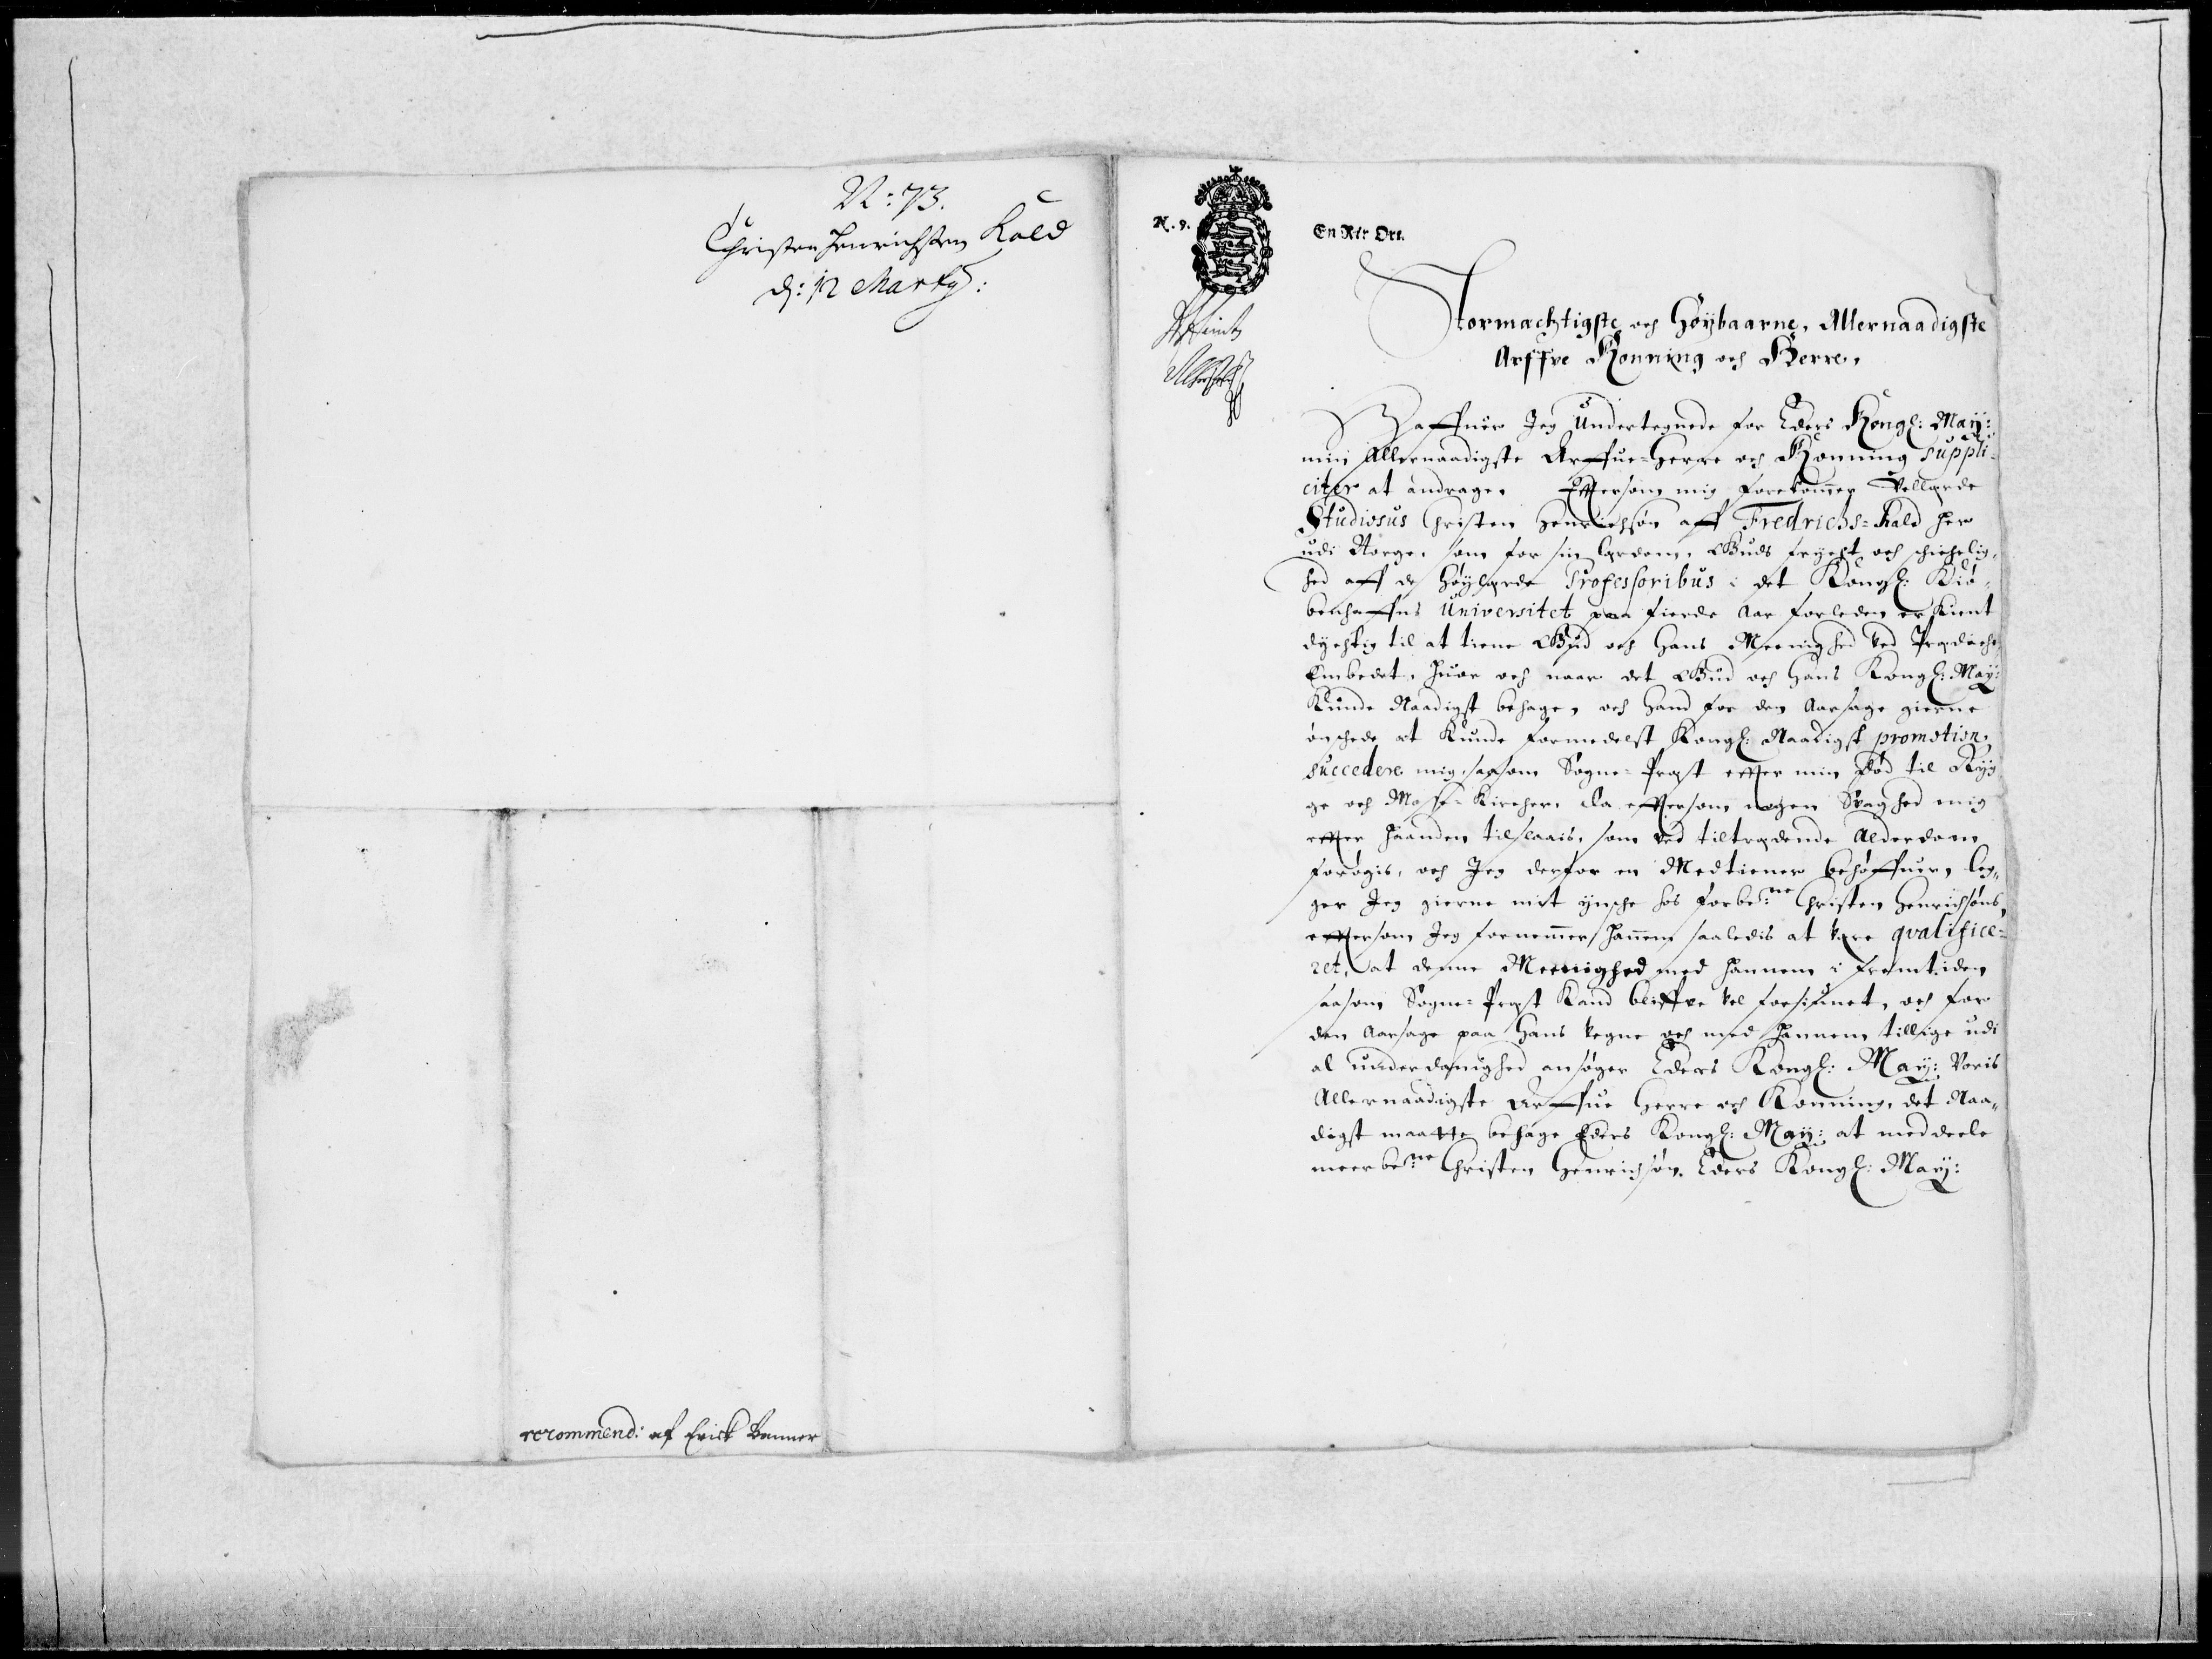 N: 73.
Christen Henrichsen Kold
d: 12 Marty:
recommend: af Erick Banner
N. 9.
En Rix Ort.
Stormachtigste och Høÿbaarne, Allernaadigste
Arffve Konning och Herre,
Jeg Undertegnede for Eders Kongl: May:
min Allernaadigste Arffue-Herre och Konning suppli-
citer at andrage. Effterson mig forekom̄er Vellærde
Studiosus Christen Henrichsøn aff Fredrichs-hald her
udi Norge, som for sin lærdom, Guds frÿcht och schichelig-
hed aff de Høÿlærde Professoribus i det Kongl: Kiø-
benhaffns Universitet paa fierde Aar forleden er kient
dÿchtig til at tiene Gud och Hans Meenighed ved Prædiche-
Embedet, huor och naar det Gud och Hans Kongl: May:
Kunde Naadigst behage, och hand for den Aarsage gierne
ønschede at Kunde formedelst Kongl: Naadigst promotion,
succedere mig saasom Sogne-Præst effter min død til Rÿg-
ge och Mosse-Kircher, da effterson nogen Svaghed mig
effter haanden tilslaais, som ved tiltrædende Alderdom
forøgis, och Jeg derfor en Medtiener behøffuer, leg-
ger Jeg gierne mit ÿnsche hos forbe:ne Christen Henrichsøns,
effterson Jeg fornem̄er han̄em saaledis at være qvalifice-
ret, at denne Meenighed med hannem i fremtiden
saasom Sogne-Præst Kand bliffve vel forsiunet, och for
den Aarsage paa Hans vegne och med hannem tillige udi
al underdanighed ansøger Eders Kongl: May: Voris
Allernaadigste Arffue Herre och Konning, det Naa-
digst maatte behage Eders Kongl: May: at meddeele
meerbe:ne Christen Henrichsøn Eders Kongl: May: